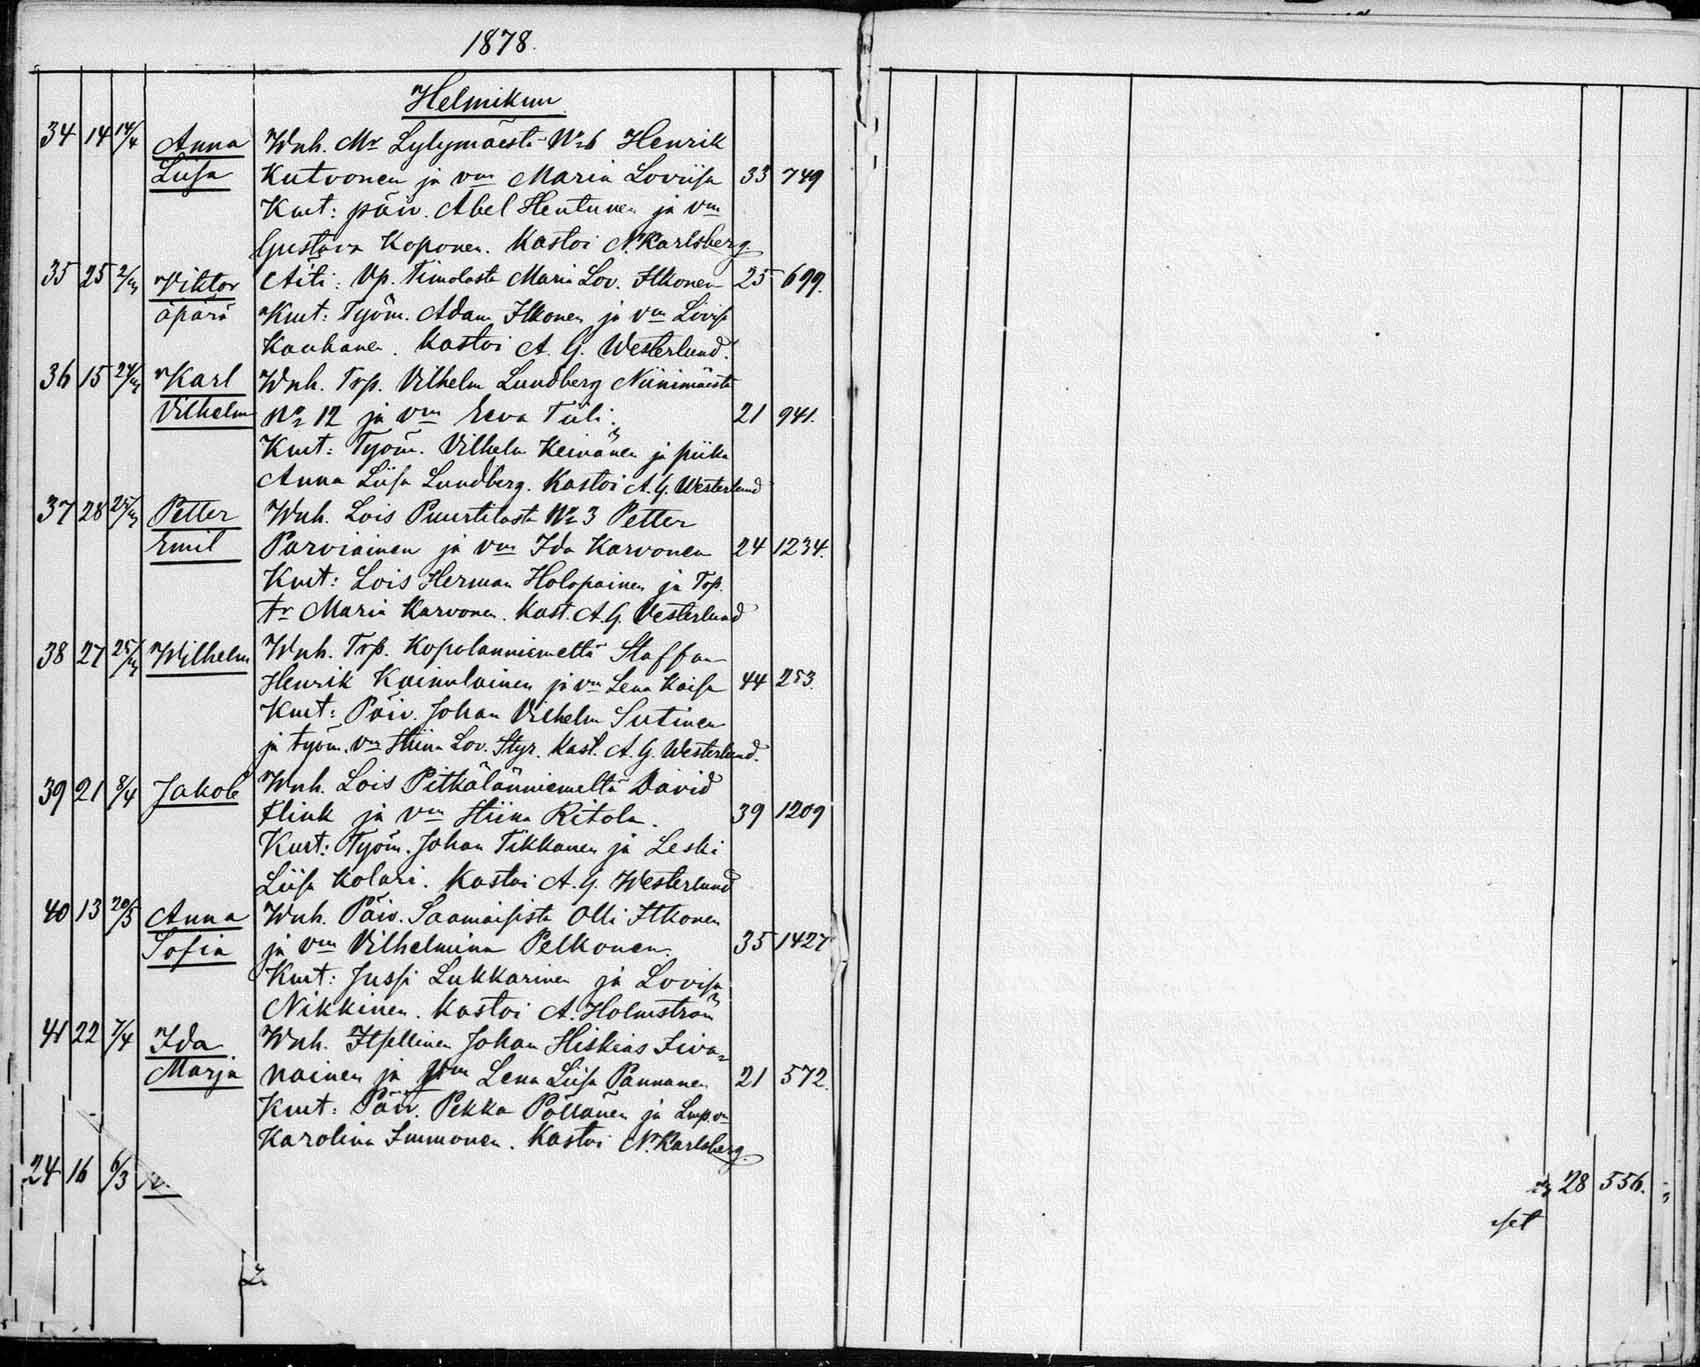 1878.
Helmikuu
34 14 14/4 Anna Wnh. Mr Lylymäestä No 6 Henrik
Liisa Kutvonen ja vm Maria Loviisa 33 749
Kmt: päiv. Abel Hentunen ja vm
Gustava Koponen. Kastoi N. Karlsberg.
35 25 2/ Viktor Äiti: Vp. Timolasta Maria Lov. Itkonen 25 699.
äpärä Kmt: Työm. Adam Itkonen ja vm Lovisa
Kauhanen. Kastoi A. G. Westerlund.
36 15 24/ Karl Wnh. Trp. Vilhelm Lundberg Niinimäestä
Vilhelm No 12 ja vm Eeva Tuli. 21 941.
Kmt: Työm. Vilhelm Keinänen ja piika
Anna Liisa Lundberg. Kastoi A. G. Westerlund
37 28 25/ Petter Wnh. Lois Puurtilasta No 3 Petter
Emil Parviainen ja vm Ida Karvonen 24 1234.
Kmt: Lois Herman Holopainen ja Trp.
tr Maria Karvonen. Kast. A. G. Vesterlund
38 27 25/ Wilhelm Wnh. Trp. Kopolanniemeltä Staffan
Henrik Kainulainen ja vm Lena Kaisa 44 253.
Kmt: Päiv. Johan Vilhelm Sutinen
ja työm. vm Stiina Lov. Styr. Kast. A. G. Westerlund.
39 21 8/4 Jakob Wnh. Lois Pitkälänniemeltä David
Flink ja vm Stiina Ritola. 39 1209
Kmt: Työm. Johan Tikkanen ja Leski
Liisa Kolari. Kastoi A. G. Westerlund
40 13 20/5 Anna Wnh. Päiv. Saamaisista Olli Itkonen
Sofia ja vm Vilhelmina Pelkonen. 35 1427
Kmt: Jussi Lukkarinen ja Lovisa
Nikkinen. Kastoi A. Holmström
41 22 7/4 Ida Wnh. Itsellinen Johan Hiskias Iiva-
Marja nainen ja vm Lena Liisa Pannanen 21 572.
Kmt: Päiv. Pekka Pöllänen ja Lmp. vm
Karolina Immonen. Kastoi N. Karlsberg.
24 16 6/3 28 556.
set